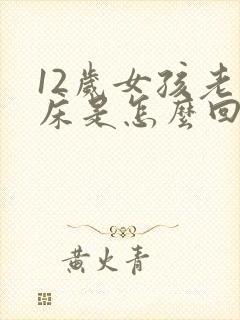 12歲女孩老
床是怎麼回
黄火青